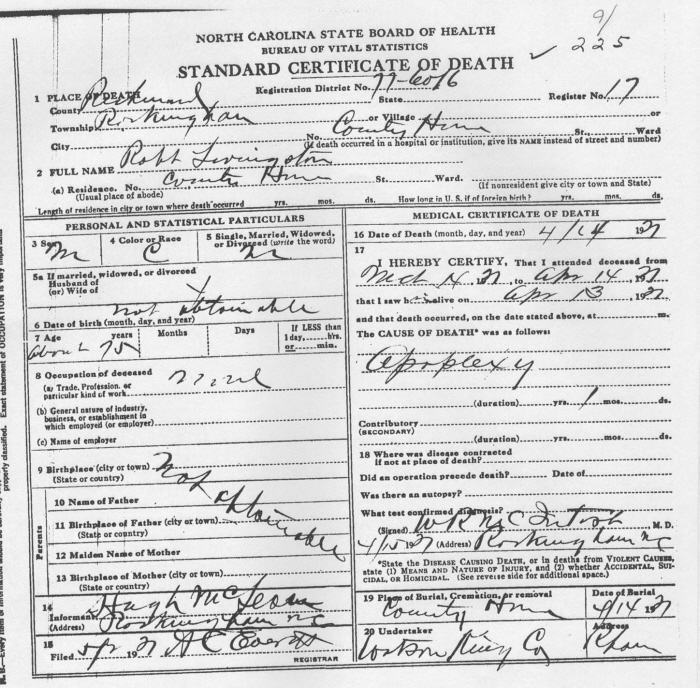 9/
225
NORTH CAROLINA STATE BOARD OF HEALTH
BUREAU OF VITAL STATISTICS
STANDARD CERTIFICATE OF DEATH
1 PLACE OF DEATH Registration District No. 77-6016 Register No. 17
County Richmond State
Township Rockingham or Village or
City No. County Home St., Ward
(If death occurred in a hospital or institution, give its NAME instead of street and number)
2 FULL NAME Robt Livingston
(a) Residence. No. County Home St. Ward.
(Usual place of abode) (If nonresident give city or town and State)
Length of residence in city or town where death occurred yrs. mos. ds. How long in U.S. if of foreign birth? yrs. mos. ds.
PERSONAL AND STATISTICAL PARTICULARS
3 Sex M 4 Color or Race C 5 Single, Married, Widowed, or Divorced (write the word)
5a If married, widowed, or divorced
Husband of
(or) Wife of
not obtainable
6 Date of birth (month, day, and year)
7 Age years Months Days If LESS than 1 day, hrs. or min.
about 75
8 Occupation of deceased
(a) Trade, Profession, or particular kind of work
(b) General nature of industry, business, or establishment in which employed (or employer)
(c) Name of employer
9 Birthplace (city or town)
(State or country)
Not obtainable
10 Name of Father
11 Birthplace of Father (city or town)
(State or country)
12 Maiden Name of Mother
13 Birthplace of Mother (city or town)
(State or country)
Parents
14 Informant Hugh McLean
(Address) Rockingham NC
15 Filed 5/2 1927 A C Everett
REGISTRAR
MEDICAL CERTIFICATE OF DEATH
16 Date of Death (month, day, and year) 4/14 1927
17 I HEREBY CERTIFY, That I attended deceased from
Mch 14, 1927, to Apr 14, 1927
that I saw him alive on Apr 13, 1927
and that death occurred, on the date stated above, at m.
The CAUSE OF DEATH* was as follows:
Apoplexy
(duration) yrs. 1 mos. ds.
Contributory
(SECONDARY)
(duration) yrs. mos. ds.
18 Where was disease contracted
if not at place of death?
Did an operation precede death? Date of
Was there an autopsy?
What test confirmed diagnosis?
(Signed) W R McIntosh, M. D.
4/15 1927 (Address) Rockingham NC
*State the DISEASE CAUSING DEATH, or in deaths from VIOLENT CAUSES, state (1) MEANS AND NATURE OF INJURY, and (2) whether ACCIDENTAL, SUICIDAL, OR HOMICIDAL. (See reverse side for additional space.)
19 Place of Burial, Cremation, or removal Date of Burial
County Home 4/14 1927
20 Undertaker Address
Watson King Co Rham
properly classified. Exact statement of OCCUPATION is very important